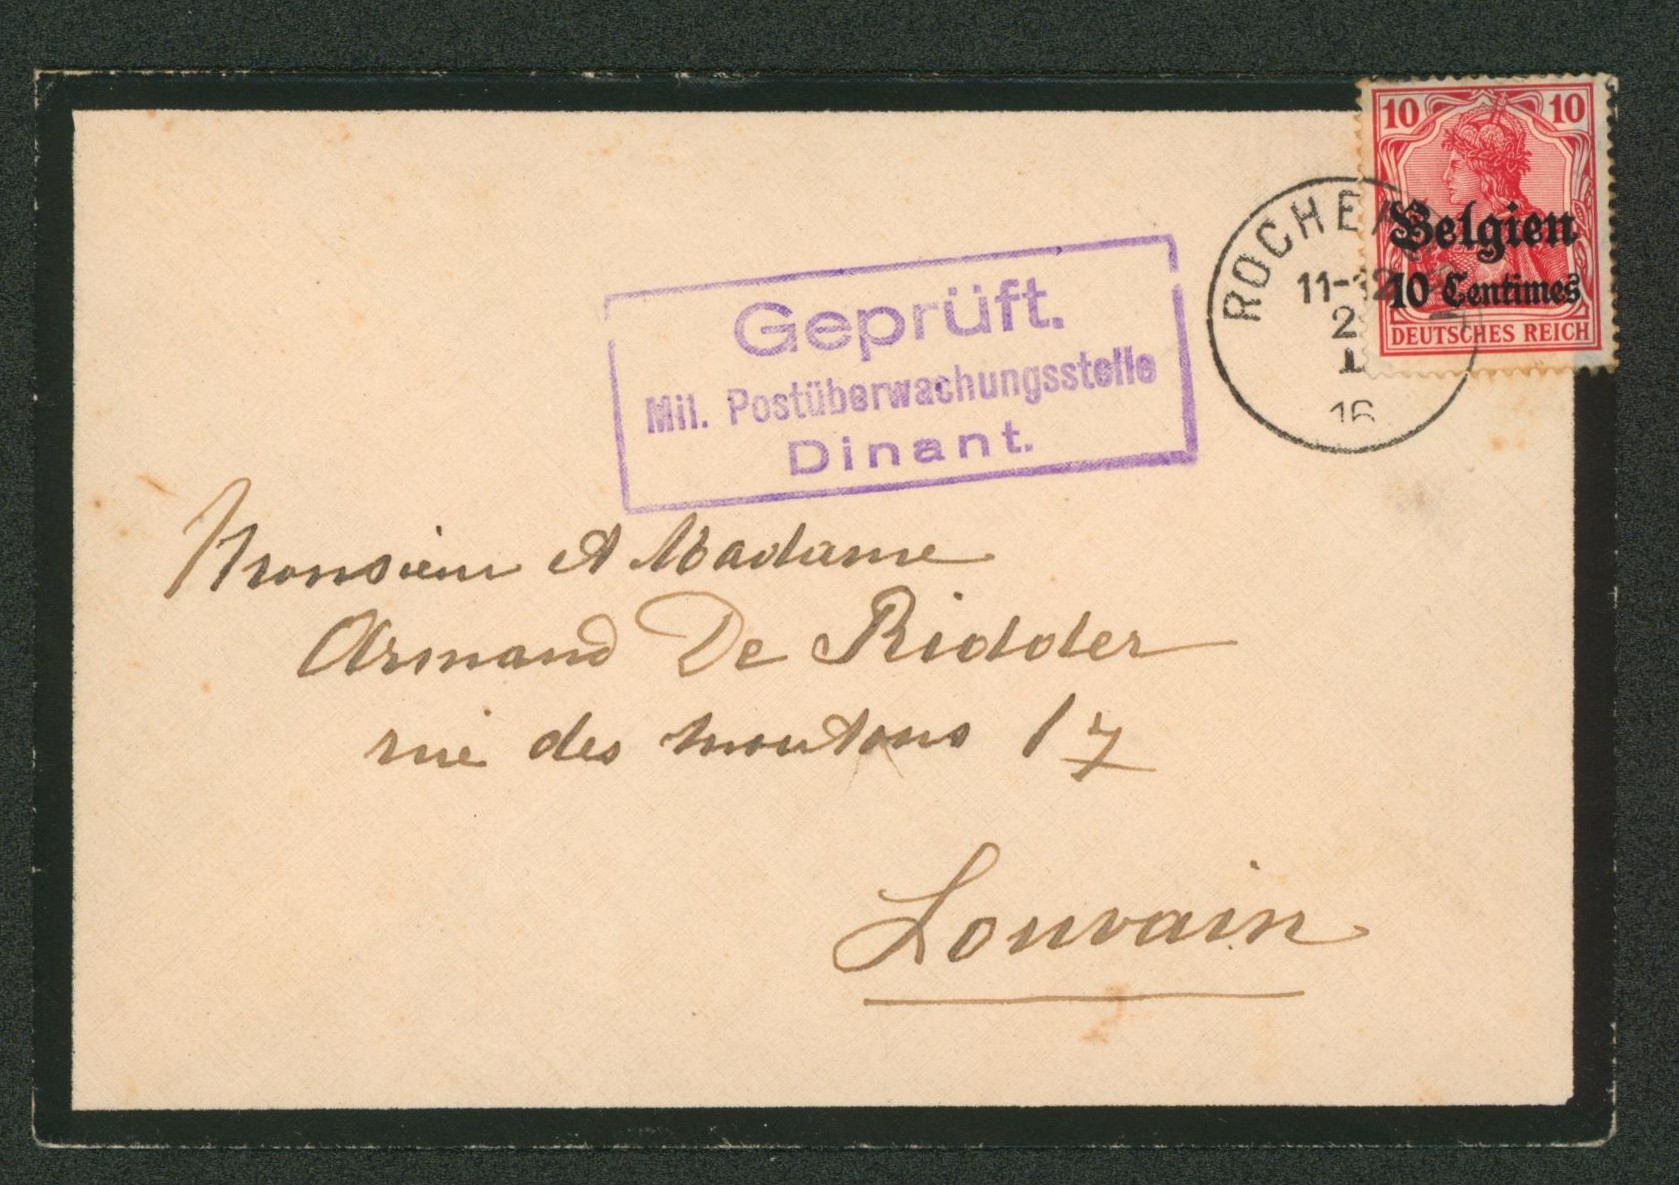 10 10
Belgien
10 Centimes
DEUTSCHES REICH
11-12
2
I
16
Geprüft.
Mil. Postüberwachungsstelle
Dinant.
Monsieur et Madame
Armand De Ridder
rue des moutons 17
Louvain